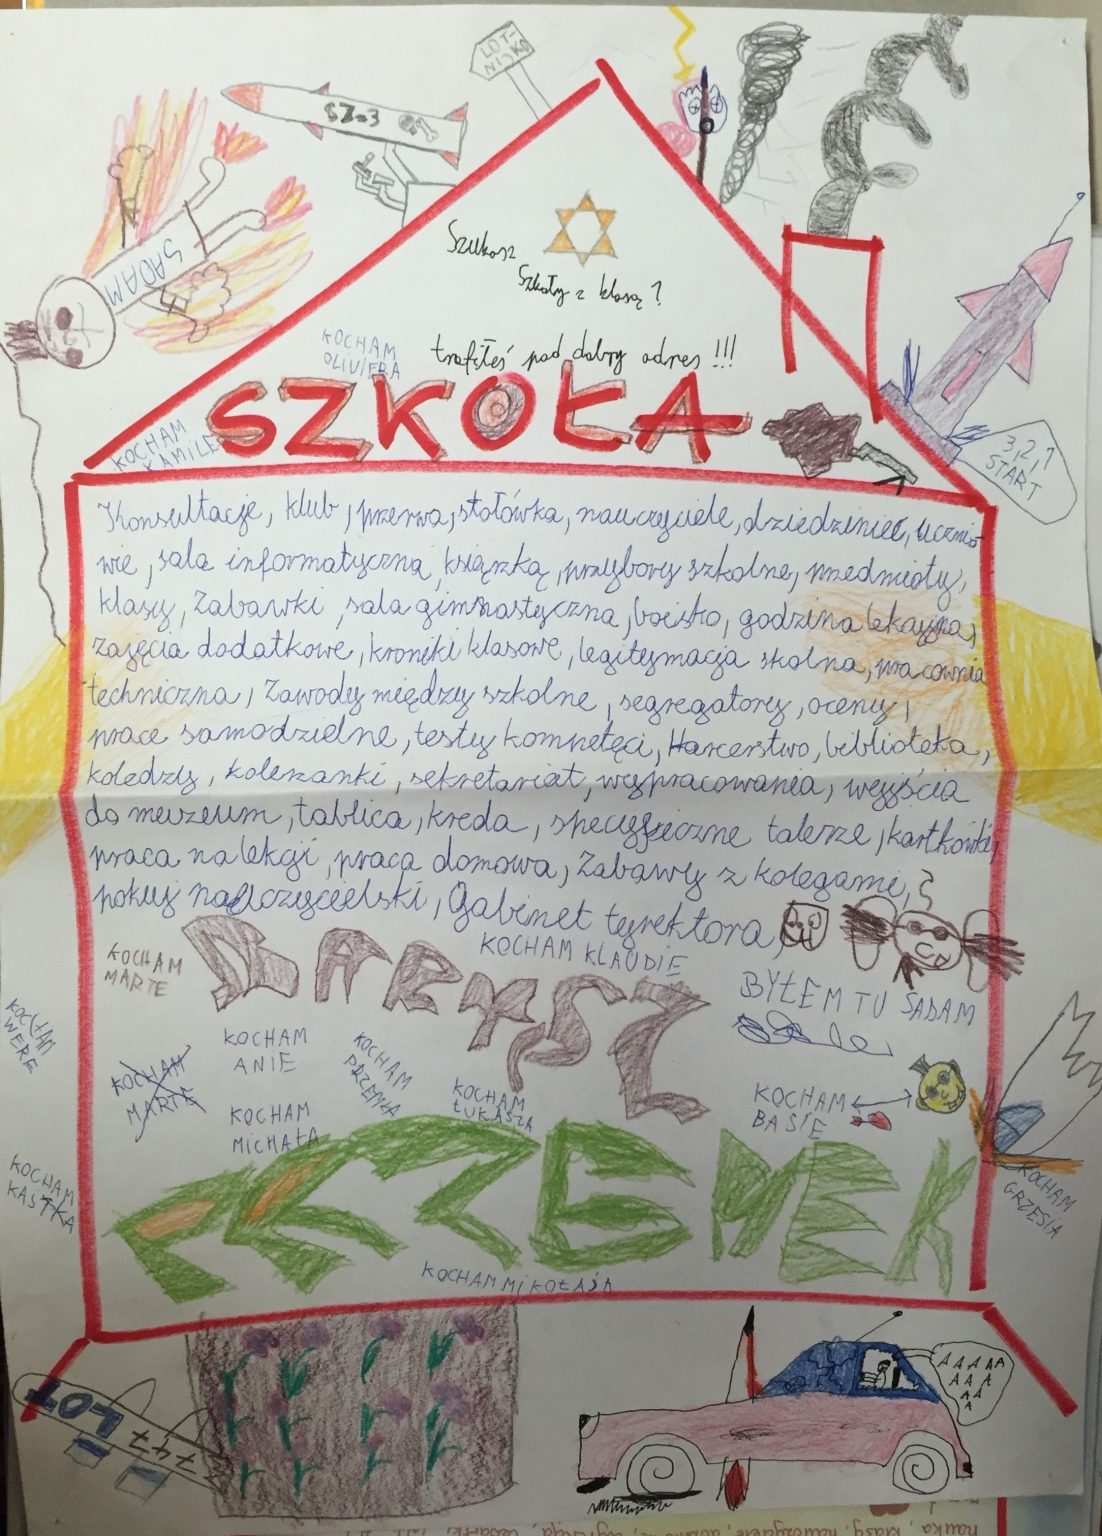 LOT-
NISKO
SZ-3
SADAM
Szukasz
Szkoły z klasą?
trafiłeś pod dobry adres!!!
KOCHAM
OLIVIERA
SZKOŁA
KOCHAM
KAMILE
3, 2, 1
START
Konsultacje, klub, przerwa, stołówka, nauczyciele, dziedziniec, ucznio-
wie, sala informatyczna, książką, przybory szkolne, przedmioty,
klasy, Zabawki, sala gimnastyczna, boisko, godzina lekcyjna,
zajęcia dodatkowe, kroniki klasowe, legitymacja skolna, pracownia
techniczna, Zawody między szkolne, segregatory, oceny,
prace samodzielne, testy kompetęci, Harcerstwo, biblioteka,
koledzy, koleżanki, sekretariat, wypracowania, wyjścia
do meuzeum, tablica, kreda, specyficzne talerze, kartkówki,
praca na lekcji, praca domowa, Zabawy z kolegami,
pokuj nauczycielski, Gabinet tyrektora,
BARYSZ
KOCHAM KLAUDIE
KOCHAM
MARTE
BYŁEM TU SADAM
KOCHAM
WERE
KOCHAM
ANIE
KOCHAM
PRZEMKA
KOCHAM
MARTE
KOCHAM
ŁUKASZA
KOCHAM
BASIE
KOCHAM
MICHAŁA
KOCHAM
KAŚTKA
KOCHAM
GRZESIA
PRZEMEK
KOCHAM MIKOŁAJA
LOT
747
A A A A A
A A A
A A
A